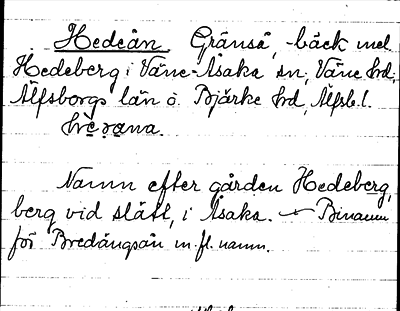 Hedeån Gränså, -bäck mel
Hedeberg i Väne-Åsaka sn, Väne hd,
Älfsborgs län o. Bjärke hd, Älfsb. l.
Namn efter gården Hedeberg,
berg vid slätt, i Åsaka. Binamn
för Bredängsån m. fl. namn.